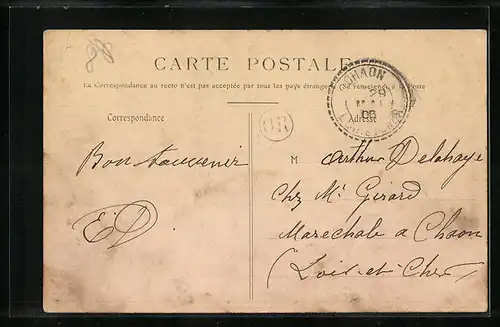 CARTE POSTALE
La Correspondance au recto n'est pas acceptée par tous les pays étrangers
Correspondance
Adresse
CHAON
29
MAI
06
LOIR-ET-CHER
OR
Bon souvenir
ED
M Arthur Delahaye
Chez Mr Girard
Marechale a Chaon
(Loir-et-Cher)